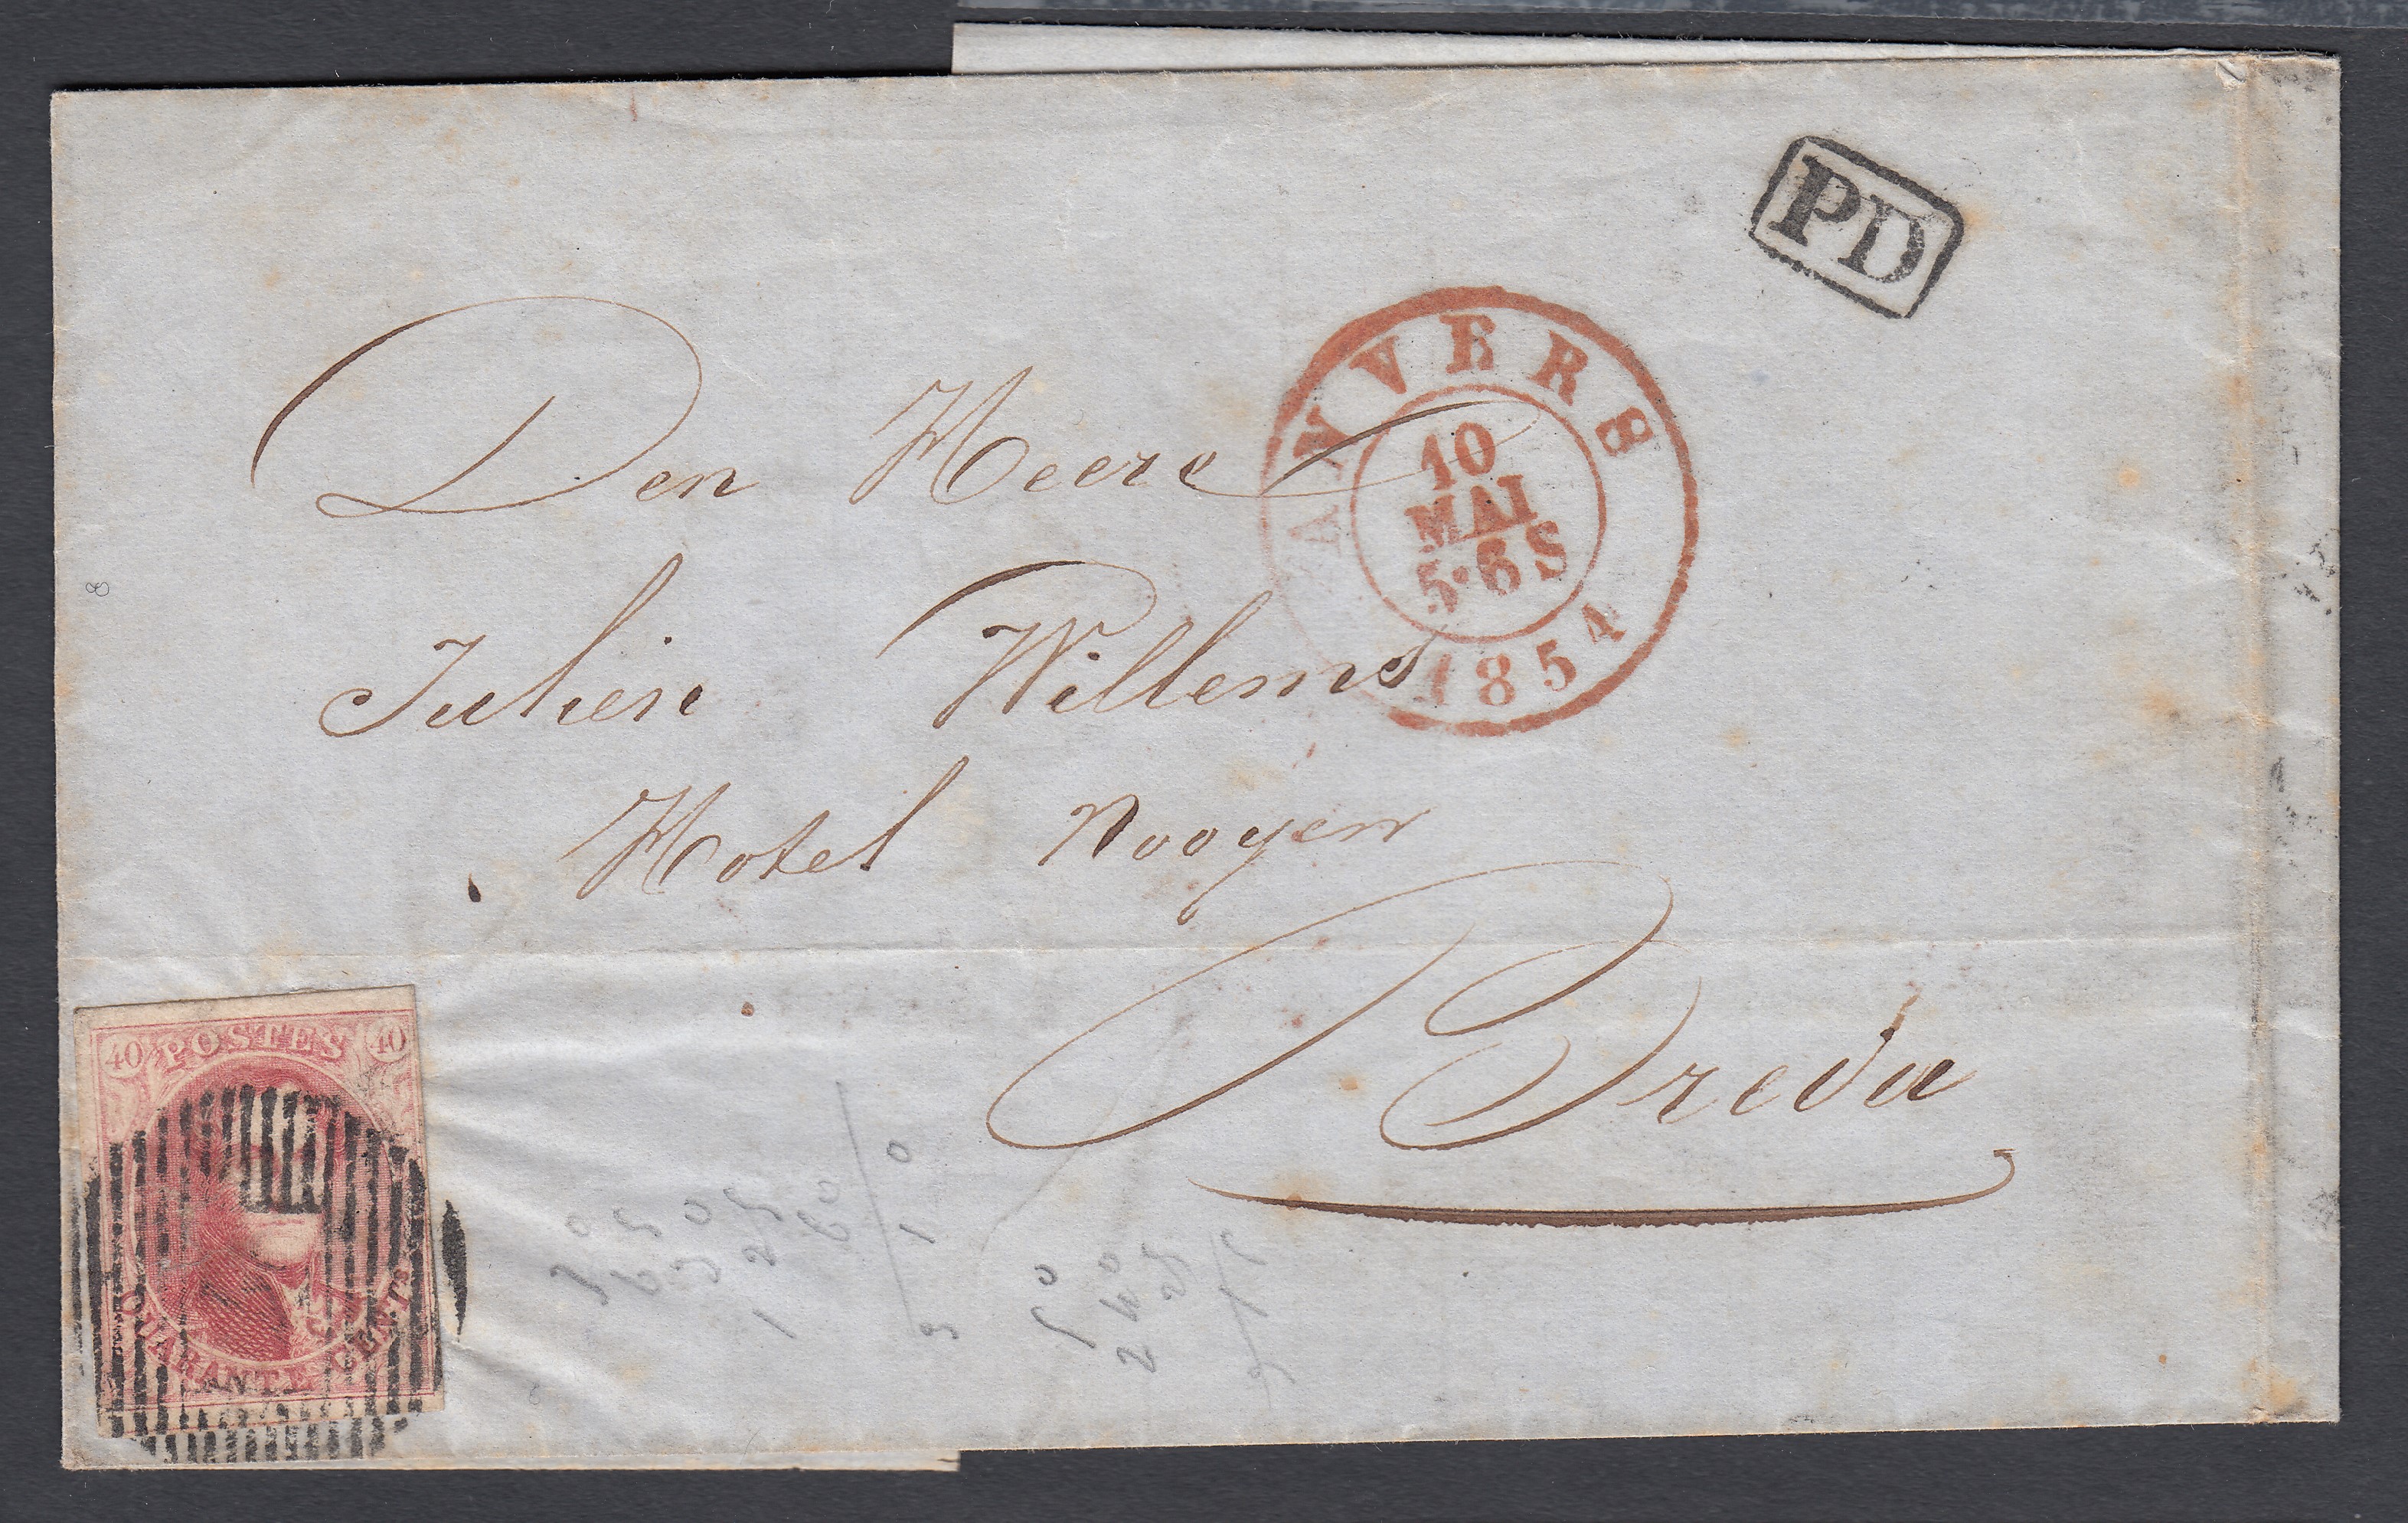 PD
ANVERS
10
MAI
5·6S
1854
Den Heere
Julien Willems
Hotel Nooyen
Breda
40 POSTES 40
QUARANTE CENTS